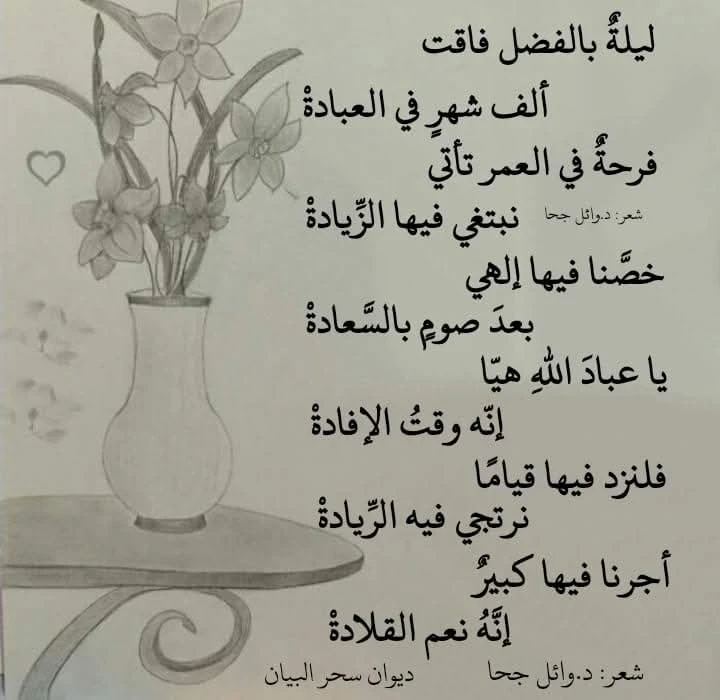 ليلةٌ بالفضل فاقت
ألف شهرٍ في العبادةْ
فرحةٌ في العمر تأتي
شعر: د.وائل جحا
نبتغي فيها الزِّيادةْ
خصَّنا فيها إلهي
بعدَ صومٍ بالسَّعادةْ
يا عبادَ اللهِ هيّا
إنّه وقتُ الإفادةْ
فلنزد فيها قيامًا
نرتجي فيه الرِّيادةْ
أجرنا فيها كبيرٌ
إنَّهُ نعم القلادةْ
شعر: د.وائل جحا ديوان سحر البيان